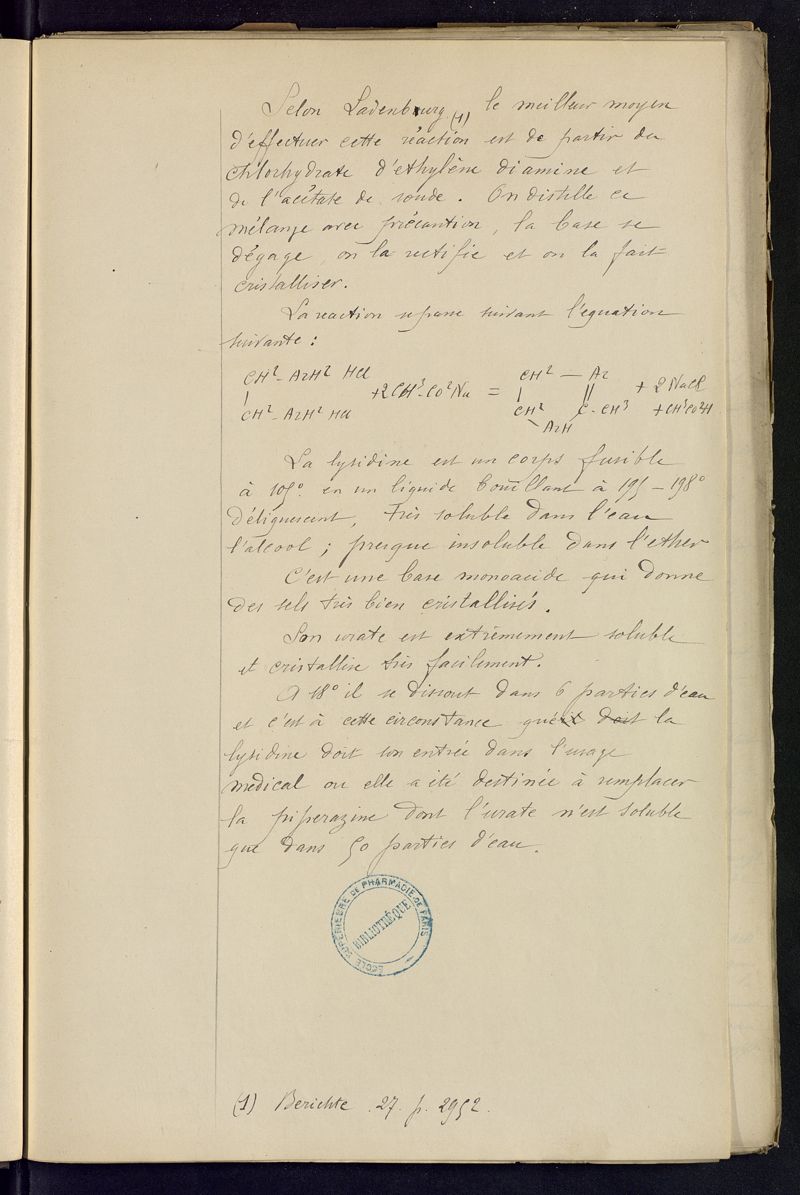 Selon Ladenburg (1) le meilleur moyen
d'effectuer cette réaction est de partir du
chlorhydrate d'ethylène diamine et
de l'acétate de soude. On distille ce
mélange avec précaution, la base se
dégage, on la rectifie et on la fait
cristalliser.
La reaction se passe suivant l'equation
suivante :
CH² - AzH² HCl
CH² - AzH² HCl
+ 2 CH³-CO²Na =
CH² — Az
CH² C - CH³
AzH
+ 2 NaCl
+ CH³CO²H
La lysidine est un corps fusible
à 105° en un liquide bouillant à 195 - 198°
déliquescent, très soluble dans l'eau
l'alcool ; presque insoluble dans l'ether
C'est une base monoacide qui donne
des sels très bien cristallisés.
Son urate est extrêmement soluble
et cristallise très facilement.
A 18° il se dissout dans 6 parties d'eau
et c'est à cette circonstance que doit la
lysidine doit son entrée dans l'usage
medical ou elle a été destinée à remplacer
la piperazine dont l'urate n'est soluble
que dans 50 parties d'eau.
ÉCOLE SUPÉRIEURE DE PHARMACIE DE PARIS
BIBLIOTHÈQUE
(1) Berichte. 27. p. 2952.